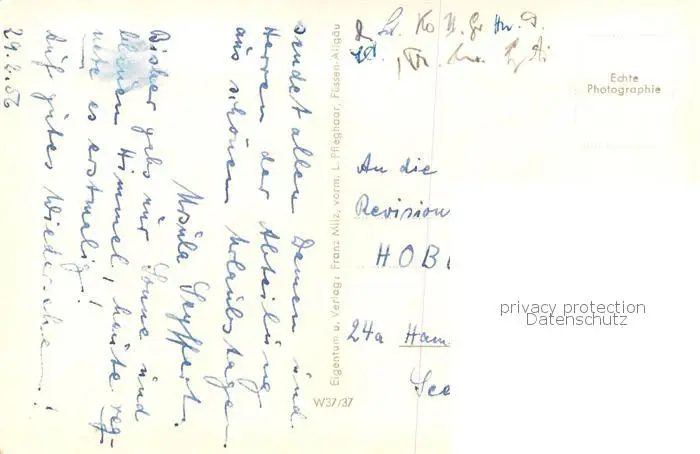 sendet allen Damen und
Herren der Abteilung
aus schönen Urlaubstagen
Ursula Seyffert.
Bisher gabs nur Sonne und
blauen Himmel, heute reg-
nete es erstmalig!
Auf gutes Wiedersehen!
29.8.56
Eigentum u. Verlag: Franz Milz, vorm. L. Pfleghaar, Füssen-Allgäu
W37/37
Echte
Photographie
An die
Revision
HOB
24a Ham
See
privacy protection
Datenschutz